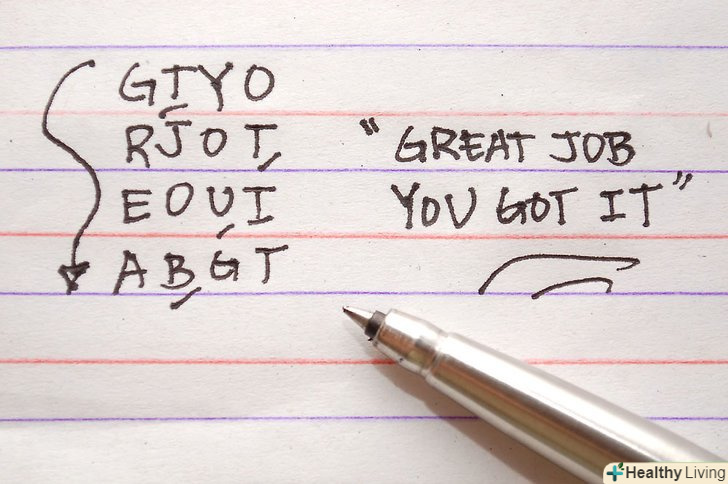 GTYO
RJOT
EOUI
ABGT
"GREAT JOB
YOU GOT IT"
Healthy Living